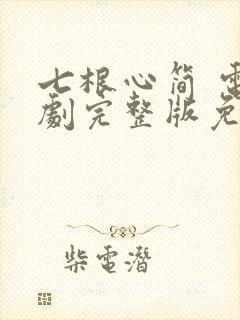 七根心简 電
劇完整版免
柴電潛